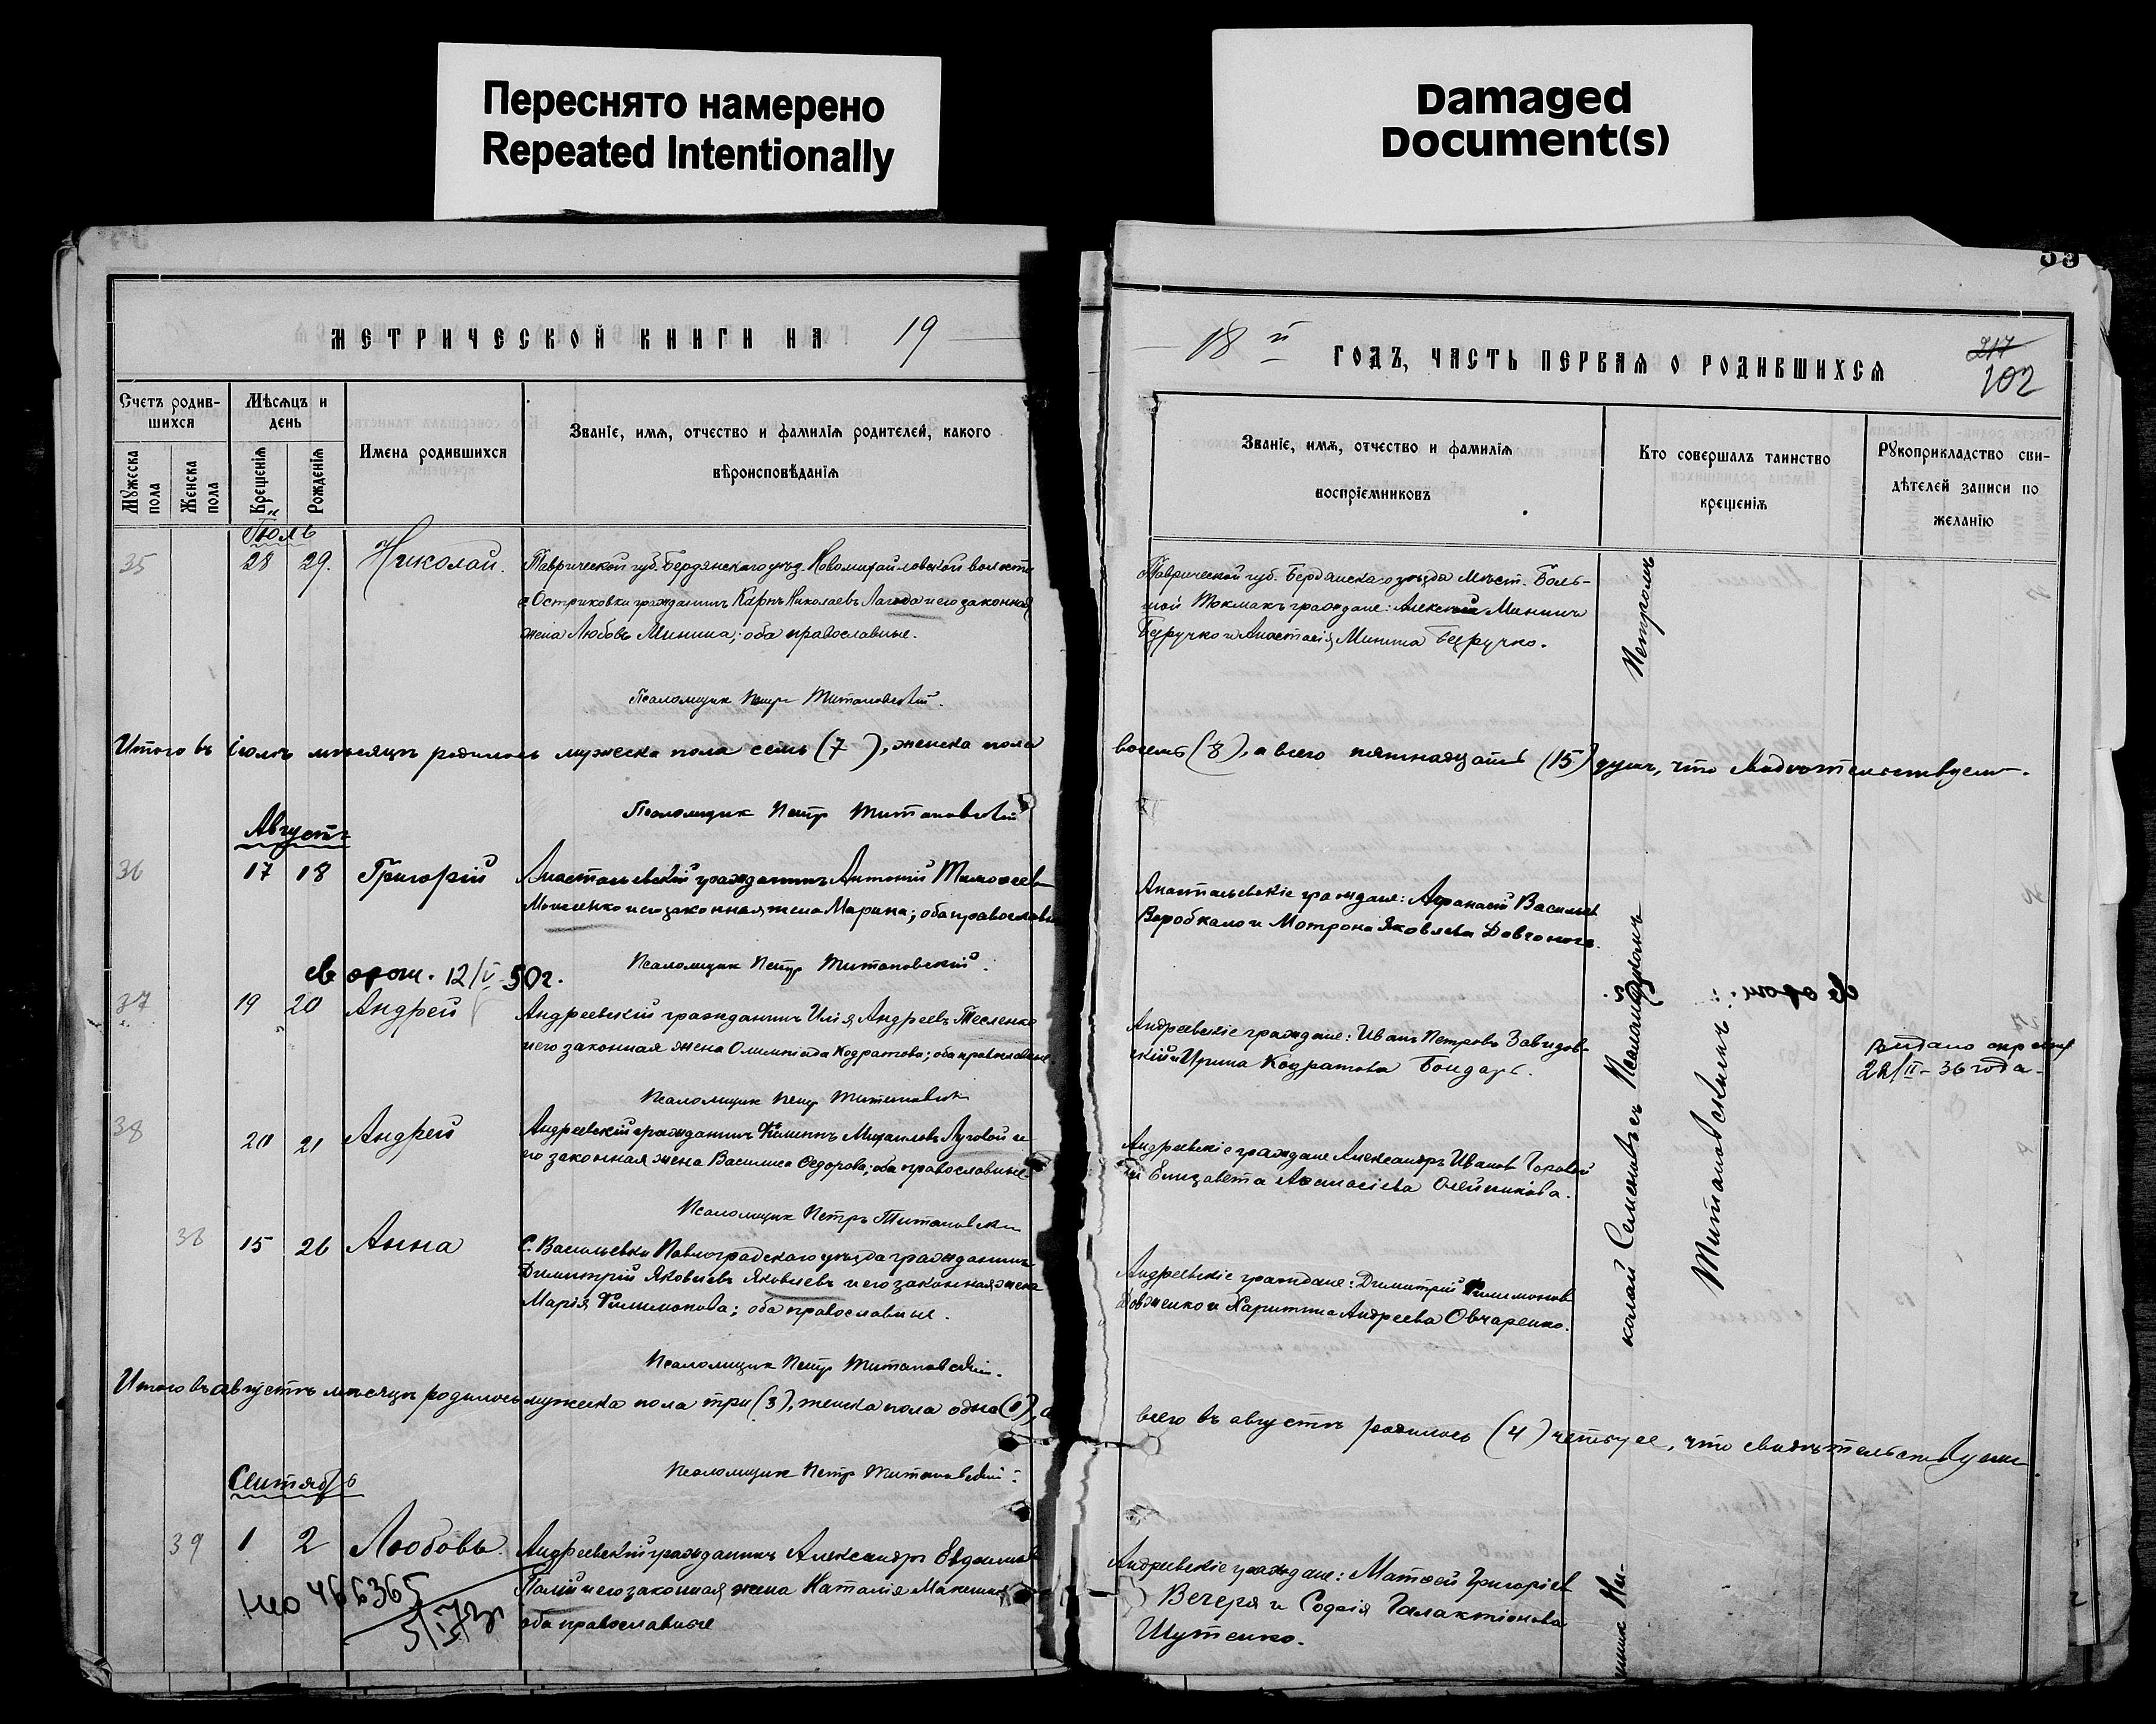 Переснято намерено
Repeated Intentionally
Damaged
Document(s)
МЕТРИЧЕСКОЙ КНИГИ НА 19
18 й ГОДЪ, ЧАСТЬ ПЕРВАЯ О РОДИВШИХСЯ
217
102
Счетъ родив-
шихся
Мужеска
пола
Женска
пола
Мѣсяцъ и
день
Крещенія
Рожденія
Имена родившихся
Званіе, имя, отчество и фамилія родителей, какого
вѣроисповѣданія
Званіе, имя, отчество и фамилія
воспріемниковъ
Кто совершалъ таинство
крещенія
Рукоприкладство сви-
дѣтелей записи по
желанію
Іюль
35 28 29. Николай.
Таврической губ. Бердянскаго уѣзд. Новомихайловской волости
с. Остриковки гражданинъ Карпъ Николаевъ Лагода и его законная
жена Любовь Минина; оба православные.
Таврической губ. Бердянскаго уѣзда Мѣст. Боль-
шой Токмакъ граждане: Алексѣй Мининъ
Безручко и Анастасія Минина Безручко.
Псаломщик Петръ Титановскій.
Итого въ іюлѣ мѣсяцѣ родилось мужеска пола семь (7), женска пола
восемь (8), а всего пятнадцать (15) душъ, что свидѣтельствуемъ.
Псаломщик Петр Титановскій
Августъ
36 17 18 Григорій
Анастасьевскій гражданинъ Антоній Тимоѳеевъ
и его законная жена Марина; оба православные
Анастасьевскіе граждане: Аѳанасій Васильев
и Мотрона Яковлева
Псаломщик Петръ Титановскій.
12/V 50г.
37 19 20 Андрей
Андреевскій гражданинъ Илія Андреевъ Тесленко
и его законная жена Олимпіада Кодратова; оба православные.
Андреевскіе граждане: Иванъ Петровъ Завидов-
скій и Ирина Кодратова Бондарь.
Выдано
22/II - 36 года.
Псаломщик Петр Титановскій
38 20 21 Андрей
Андреевскій гражданинъ Филиппъ Михаиловъ Луговой и
его законная жена Василиса Ѳедорова; оба православные.
Андреевскіе граждане Александръ Ивановъ
и Елизавета Аѳанасіева Олейникова.
Псаломщик Петръ Титановскій
38 15 26 Анна
С. Васильевки Павлоградскаго уѣзда гражданинъ
Димитрій Яковлевъ Яковлевъ и его законная жена
Марія Филимонова; оба православные.
Андреевскіе граждане: Димитрій Филимоновъ
Довженко и Харитина Андреева Овчаренко.
Псаломщик Петр Титановскій.
Итого въ августѣ мѣсяцѣ родилось мужеска пола три (3), женска пола одна (1), а
всего въ августѣ родилось (4) четыре, что свидѣтельствуемъ.
Псаломщик Петр Титановскій.
Сентябрь
39 1 2 Любовь.
Андреевскій гражданинъ Александръ Евдокимовъ
Палій и его законная жена Наталія
оба православные
Андреевскіе граждане: Матѳей Григоріев
Вечеря и Софія Галактіонова
Шутенко.
466365
колай Семеновъ съ Псаломщикомъ
Петромъ
Титановскимъ.